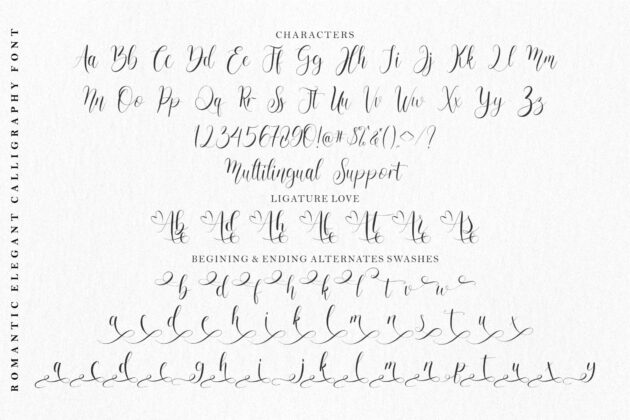 ROMANTIC ELEGANT CALLIGRAPHY FONT
CHARACTERS
Aa Bb Cc Dd Ee Ff Gg Hh Ii Jj Kk Ll Mm
Nn Oo Pp Qq Rr Ss Tt Uu Vv Ww Xx Yy Zz
1234567890!@#$%&()^/?
Multilingual Support
LIGATURE LOVE
BEGINING & ENDING ALTERNATES SWASHES
b d f h k l t v w
a c d e h i k l m n s t u x
a c d e g h i j k l m n p t u x y